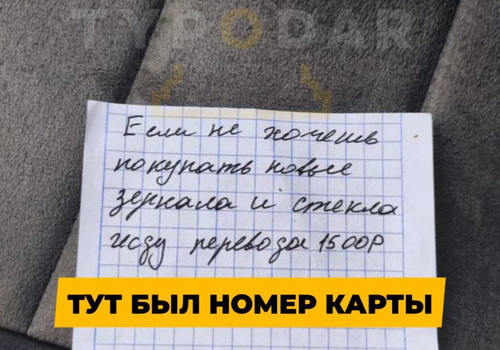 TYPODAR
Если не хочешь
покупать новые
зеркала и стекла
жду перевода 1500Р
ТУТ БЫЛ НОМЕР КАРТЫ